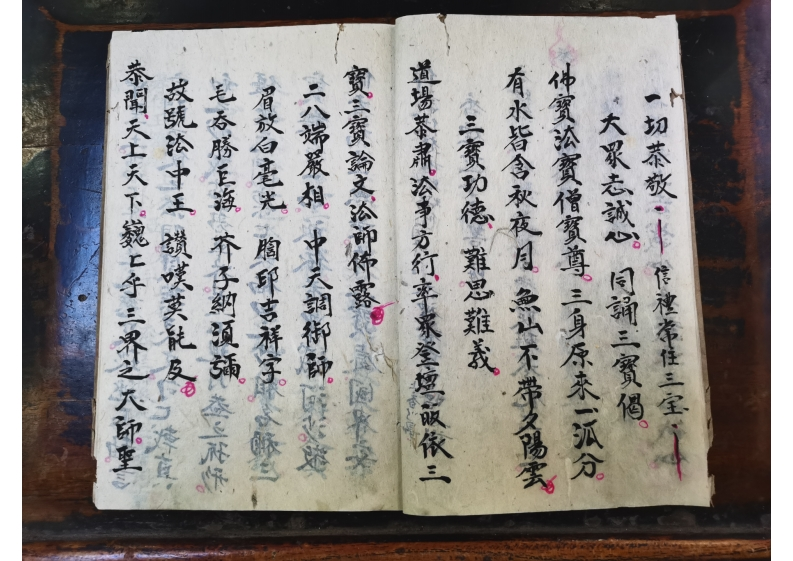 一切恭敬 信禮常住三宝
大眾志誠心 同誦三寶偈
佛寶法寶僧寶尊 三身原來一派分
有水皆含秋夜月 無山不帶夕陽雲
三寶功德 難思難義
道場恭肅 法事方行 率眾登壇 皈依三
寶 三寶論文 法師佈露
二八端嚴相 中天調御師
眉放白毫光 胸卬吉祥字
毛吞勝巨海 芥子納須彌
故號法中王 讃嘆莫能及
恭聞 天上天下 巍〻乎三界之大師 聖